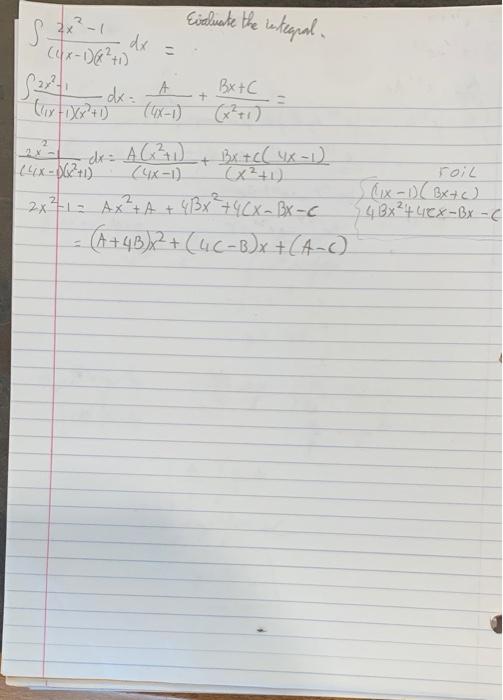 Evaluate the integral.
∫ 2x²-1 / (4x-1)(x²+1) dx =
∫ 2x²-1 / (4x-1)(x²+1) dx = A / (4x-1) + Bx+C / (x²+1) =
2x²-1 / (4x-1)(x²+1) dx = A(x²+1) / (4x-1) + Bx+C(4x-1) / (x²+1)
FOIL
(4x-1)(Bx+C)
2x²-1 = Ax²+A + 4Bx²+4Cx-Bx-C
4Bx²+4Cx-Bx-C
= (A+4B)x²+(4C-B)x+(A-C)